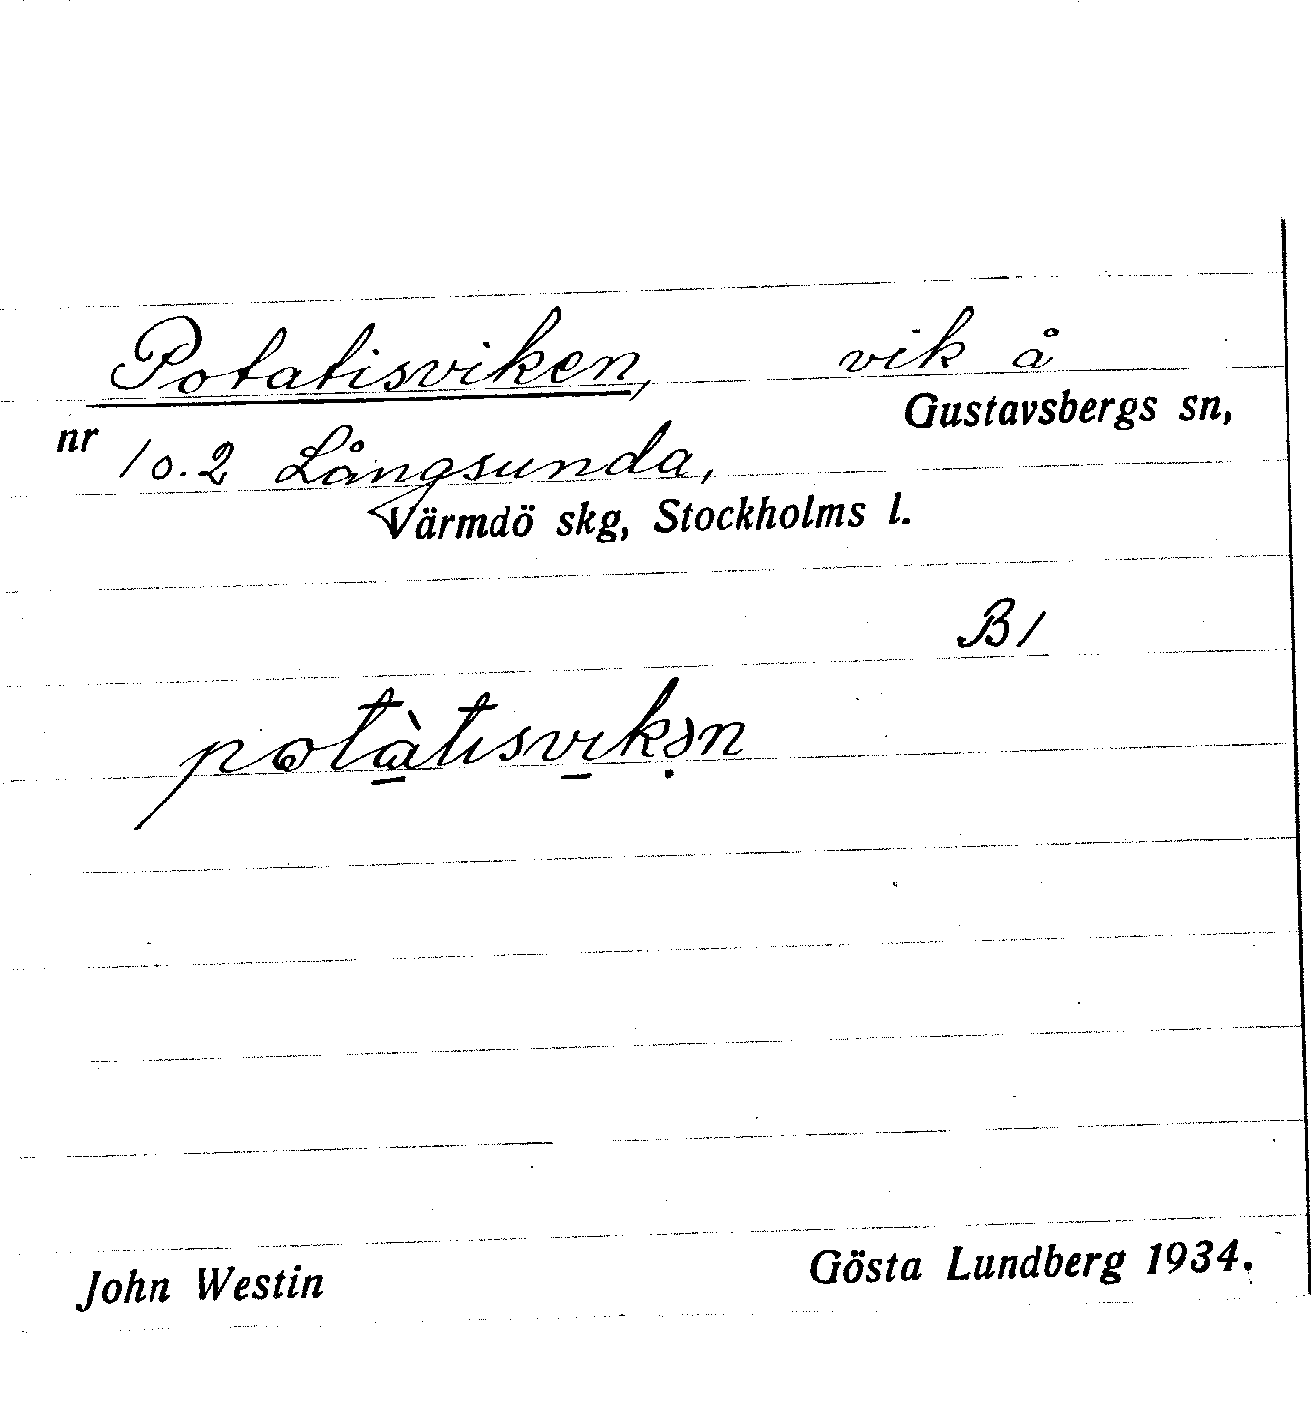 Potatisviken, vik å
Gustavsbergs sn,
nr 1 o. 2 Långsunda,
Värmdö skg, Stockholms l.
B1
potàtısvıkən
John Westin Gösta Lundberg 1934.